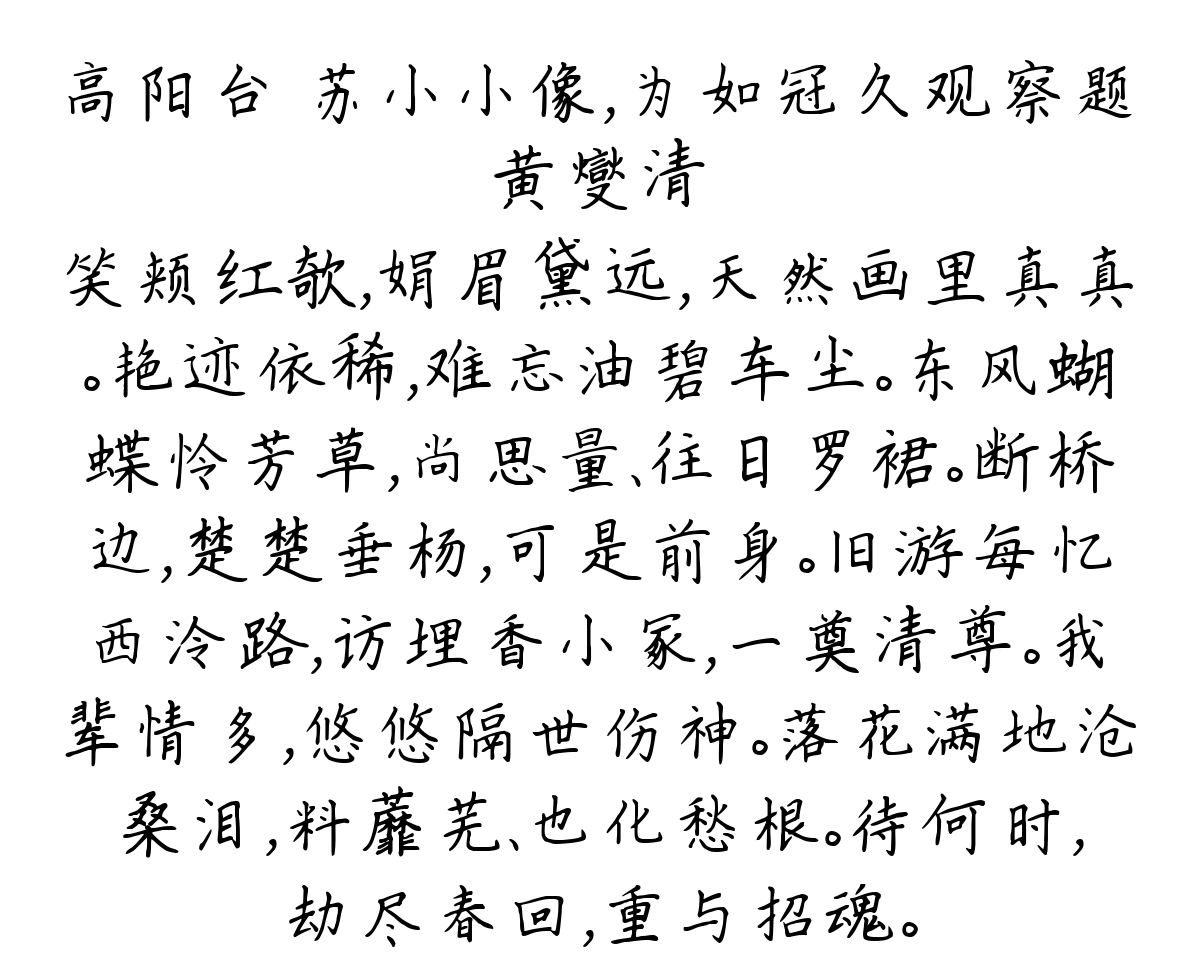 高阳台 苏小小像,为如冠久观察题
黄燮清
笑颊红欹,娟眉黛远,天然画里真真
。艳迹依稀,难忘油碧车尘。东风蝴
蝶怜芳草,尚思量、往日罗裙。断桥
边,楚楚垂杨,可是前身。旧游每忆
西泠路,访埋香小冢,一奠清尊。我
辈情多,悠悠隔世伤神。落花满地沧
桑泪,料蘼芜、也化愁根。待何时,
劫尽春回,重与招魂。